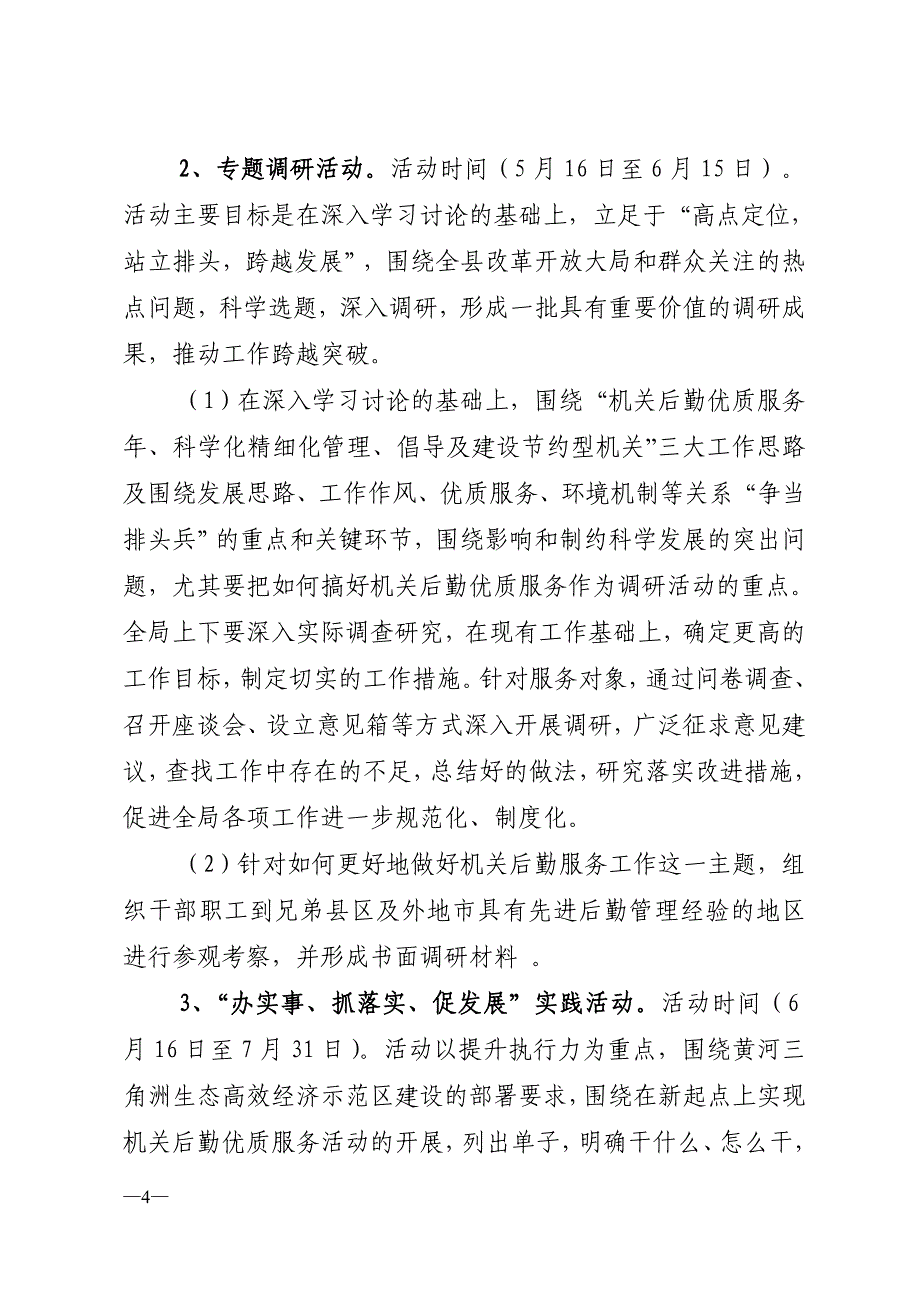 2、专题调研活动。活动时间（5月16日至6月15日）。
活动主要目标是在深入学习讨论的基础上，立足于“高点定位，
站立排头，跨越发展”，围绕全县改革开放大局和群众关注的热
点问题，科学选题，深入调研，形成一批具有重要价值的调研成
果，推动工作跨越突破。
（1）在深入学习讨论的基础上，围绕“机关后勤优质服务
年、科学化精细化管理、倡导及建设节约型机关”三大工作思路
及围绕发展思路、工作作风、优质服务、环境机制等关系“争当
排头兵”的重点和关键环节，围绕影响和制约科学发展的突出问
题，尤其要把如何搞好机关后勤优质服务作为调研活动的重点。
全局上下要深入实际调查研究，在现有工作基础上，确定更高的
工作目标，制定切实的工作措施。针对服务对象，通过问卷调查、
召开座谈会、设立意见箱等方式深入开展调研，广泛征求意见建
议，查找工作中存在的不足，总结好的做法，研究落实改进措施，
促进全局各项工作进一步规范化、制度化。
（2）针对如何更好地做好机关后勤服务工作这一主题，组
织干部职工到兄弟县区及外地市具有先进后勤管理经验的地区
进行参观考察，并形成书面调研材料 。
3、“办实事、抓落实、促发展”实践活动。活动时间（6
月16日至7月31日）。活动以提升执行力为重点，围绕黄河三
角洲生态高效经济示范区建设的部署要求，围绕在新起点上实现
机关后勤优质服务活动的开展，列出单子，明确干什么、怎么干，
—4—